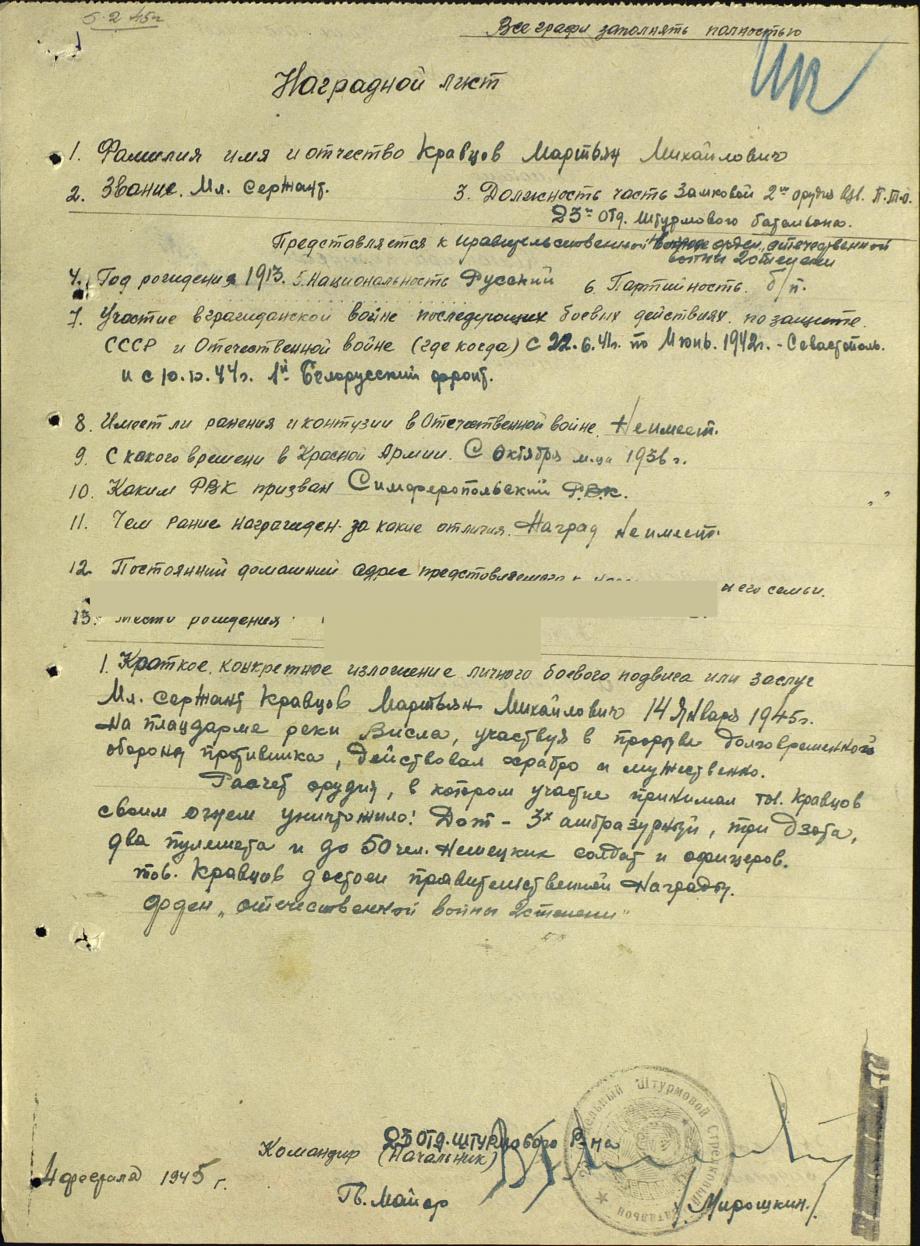 5.2.45г
Все графи заполнять полностью
Наградной лист
1. Фамилия имя и отчество Кравцов Мартьян Михайлович
2. Звание. Мл. сержант.
3. Должность часть Замковой 2го орудия взв. П.Т.О.
23го Отд. штурмового батальона.
Представляется к правительственной орден „отечественной
войны 2 степени
4. Год рождения 1913. 5. Национальность Русский 6. Партийность. б/п.
7. Участие в гражданской войне последующих боевых действиях по защите
СССР и Отечественной войне (где когда) с 22.6.41г. по Июнь. 1942г. - Севастополь.
и с 10.10.44г. 1й Белорусский фронт.
8. Имеет ли ранения и контузии в Отечественной войне. Не имеет.
9. С какого времени в Красной Армии. С Октября м-ца 1936 г.
10. Каким РВК призван Симферопольский Р.В.К.
11. Чем рание награжден за какие отличия. Наград не имеет.
12. Постоянний домашний адрес представляемого к
и его семьи.
13. Место рождения
1. Краткое, конкретное изложение личного боевого подвига или заслуг
Мл. сержант Кравцов Мартьян Михайлович 14 Января 1945г.
на плацдарме реки Висла, участвуя в прорыве долговременной
обороны противника, Действовал храбро и мужественно.
Расчет орудия, в котором участие принимал тов. Кравцов
своим огнем уничтожило: Дот - 3х амбразурный, три Дзота,
два пулемета и до 50 чел. Немецких солдат и офицеров.
тов. Кравцов достоен правительственной Награды.
орден „отечественной войны 2 степени"
Командир 23 Отд. штурмового Б-на
(Начальник)
4 февраля 1945 г.
Гв. Майор /Мирошкин./
Штурмовой Стрелковый Батальон